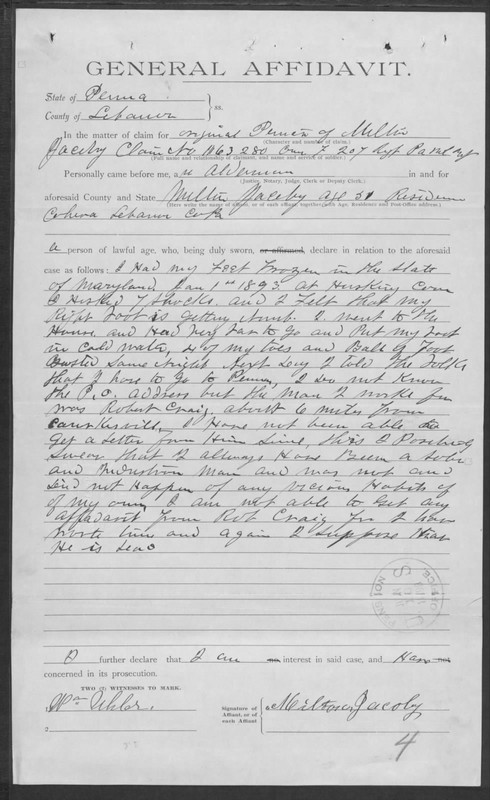 GENERAL AFFIDAVIT.
State of Penna
County of Lebanon } ss.
In the matter of claim for original Pension of Milton
(Character and number of claim.)
Jacoby Claim No 1163280 207 Regt Pa Vol
(Full name and relationship of claimant, and name and service of soldier.)
Personally came before me, an Alderman in and for
(Justice, Notary, Judge, Clerk or Deputy Clerk.)
aforesaid County and State Milton Jacoby age 51 Residence
(Here write name of affiant, or as of each affiant, together with Age, Residence and Post-Office address.)
Lebanon Co Pa
a person of lawful age, who, being duly sworn, or affirmed, declare in relation to the aforesaid
case as follows: I Had my Feet Frozen in the State
of Maryland Jan 1st 1893 at Husking Corn
I Husked 7 shocks. and I Felt that my
Right Foot is getting numb. I went to the
House and Had to Go and Put my foot
in Cold Water, 4 of my toes and Ball of Foot
Busted Same Night. Next Day I told the Folks
that I Have to Go to Penna, I do not Know
the P.O. address but the Man I worke for
was Robert Craig. about 6 miles from
I Have not been able to
Get a Letter from Him Since, this I Positively
Swear that I allways Have Been a sober
and Industrious Man and was not and
did not Happen of any vicious Habits of
of my own, I am not able to Get any
Affadavit from Rob Craig for I have
wrote time and again I suppose that
He is dead
I further declare that I an no interest in said case, and Have not
concerned in its prosecution.
TWO (2) WITNESSES TO MARK.
Wm Uhler.
2
Signature of
Affiant, or
of each
Affiant.
Milton Jacoby
4